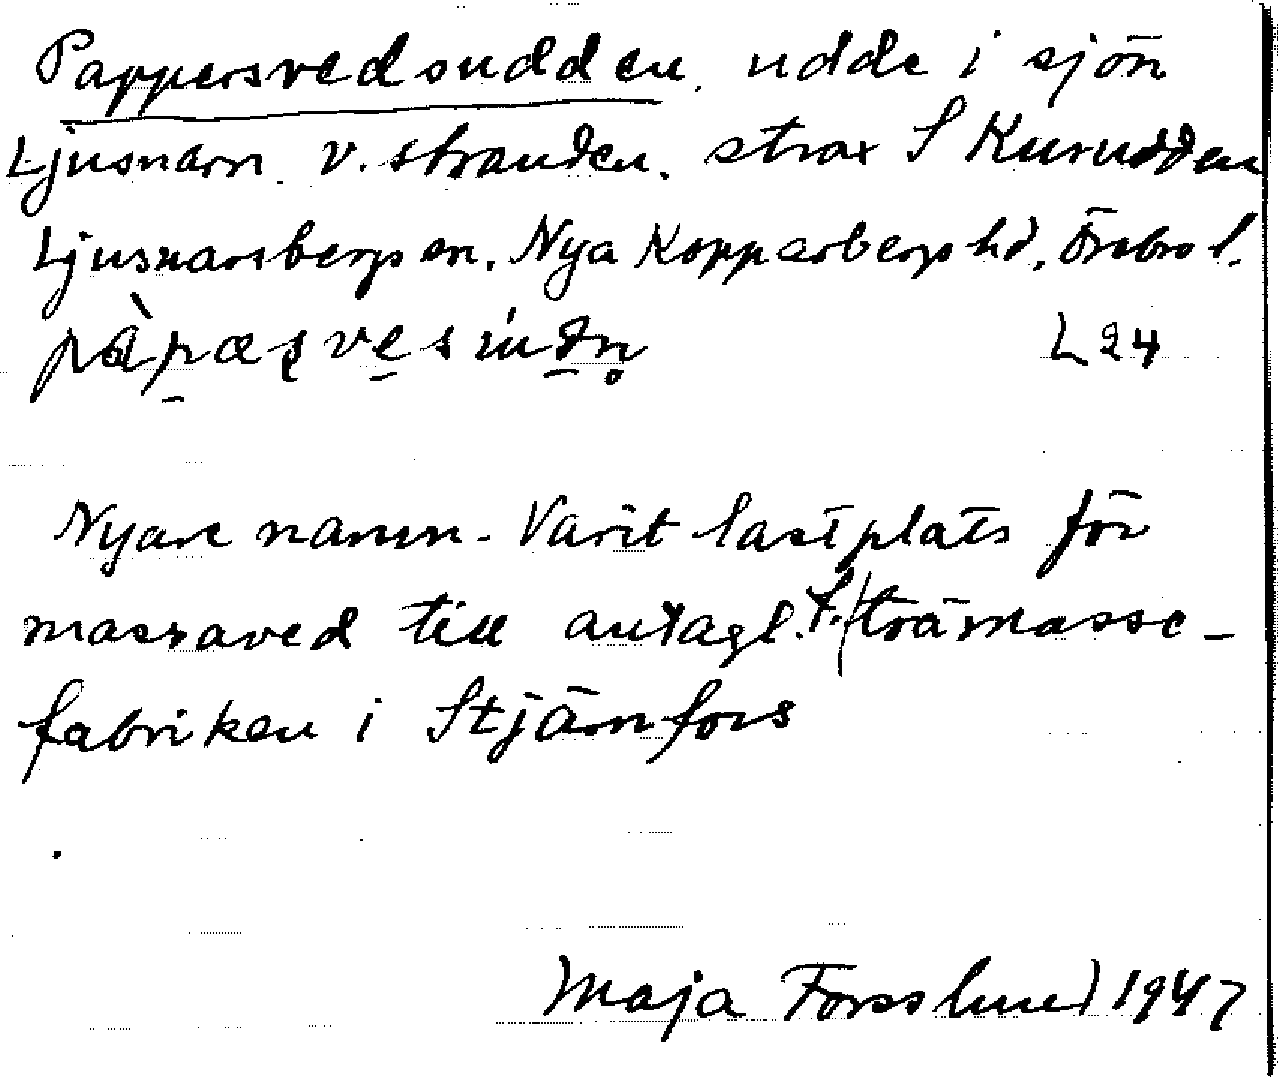 Pappersvedsudden, udde i sjön
Ljusnarn v. stranden, strax S Kurudden
Ljusnarsbergs sn. Nya Kopparbergs hd, Örebro l.
L 24
Nyare namn. Varit lastplats för
massaved till antagl. f. trämasse-
fabriken i Stjärnfors
Maja Forsslund 1947